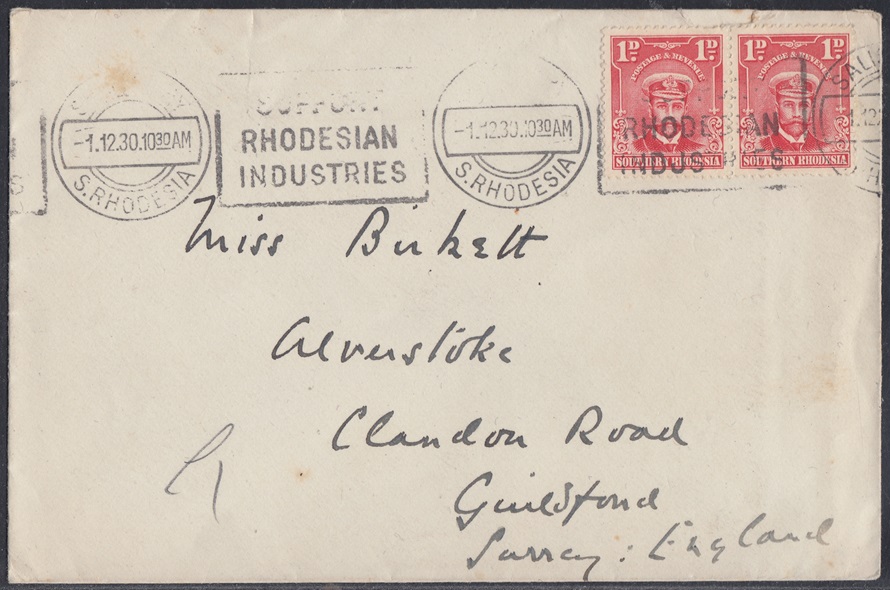 -1.12.30.10 30 AM
S. RHODESIA
SUPPORT
RHODESIAN
INDUSTRIES
-1.12.30.10 30 AM
S. RHODESIA
1D 1D
POSTAGE & REVENUE
SOUTHERN RHODESIA
1D 1D
POSTAGE & REVENUE
SOUTHERN RHODESIA
RHODESIAN
Miss Birkett
Alverstoke
Clandon Road
Guildford
Surrey: England